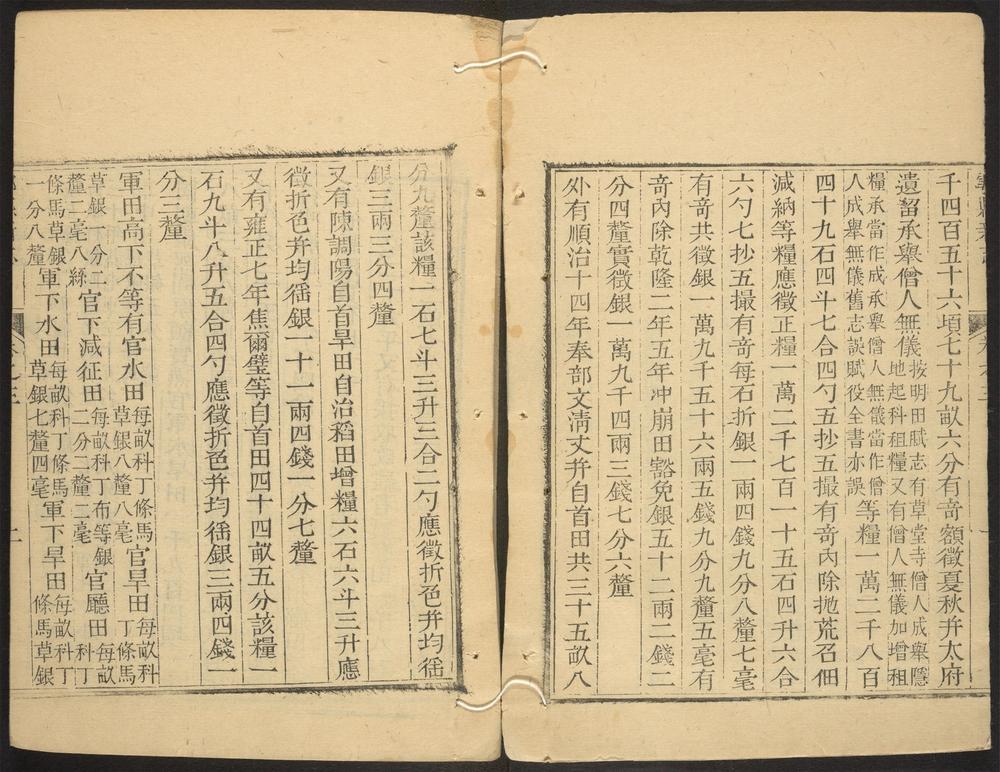 千四百五十六頃七十九畝六分有竒額徵夏秋幷太府
遺留承舉僧人無儀按明田賦志有草堂寺僧人成舉隱
地起科租糧又有僧人無儀加增租
糧承當作成承舉僧人無儀當作僧
人成舉無儀舊志誤賦役全書亦誤等糧一萬二千八百
四十九石四斗七合四勺五抄五撮有竒內除抛荒召佃
減納等糧應徵正糧一萬二千七百一十五石四升六合
六勺七抄五撮有竒每石折銀一兩四錢九分八釐七毫
有竒共徵銀一萬九千五十六兩五錢九分九釐五毫有
竒內除乾隆二年五年冲崩田豁免銀五十二兩二錢二
分四釐實徵銀一萬九千四兩三錢七分六釐
外有順治十四年奉部文淸丈幷自首田共三十五畝八
分九釐該糧一石七斗三升三合二勺應徵折色幷均徭
銀三兩三分四釐
又有陳調陽自首旱田自治稻田增糧六石六斗三升應
徵折色幷均徭銀一十一兩四錢一分七釐
又有雍正七年焦爾璧等自首田四十四畝五分該糧二
石九斗八升五合四勺應徵折色幷均徭銀三兩四錢一
分三釐
軍田高下不等有官水田每畝科丁條馬
草銀八釐八毫官旱田每畝科
丁條馬
草銀一分二
釐二毫八絲官下減征田每畝科丁布等銀
二分二釐二毫官廳田每畝
科丁
條馬草銀
一分八釐軍下水田每畝科丁條馬
草銀七釐四毫軍下旱田每畝科丁
條馬草銀